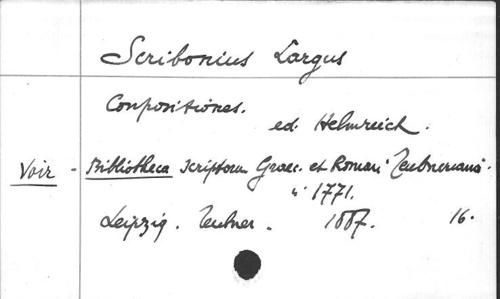 Scribonius Largus
Conpositiones.
ed. Helmreich.
Voir - Bibliotheca scriptorum Graec. et Roman. Teubneriana.
" 1771.
Leipzig. Teubner. 1887. 16.